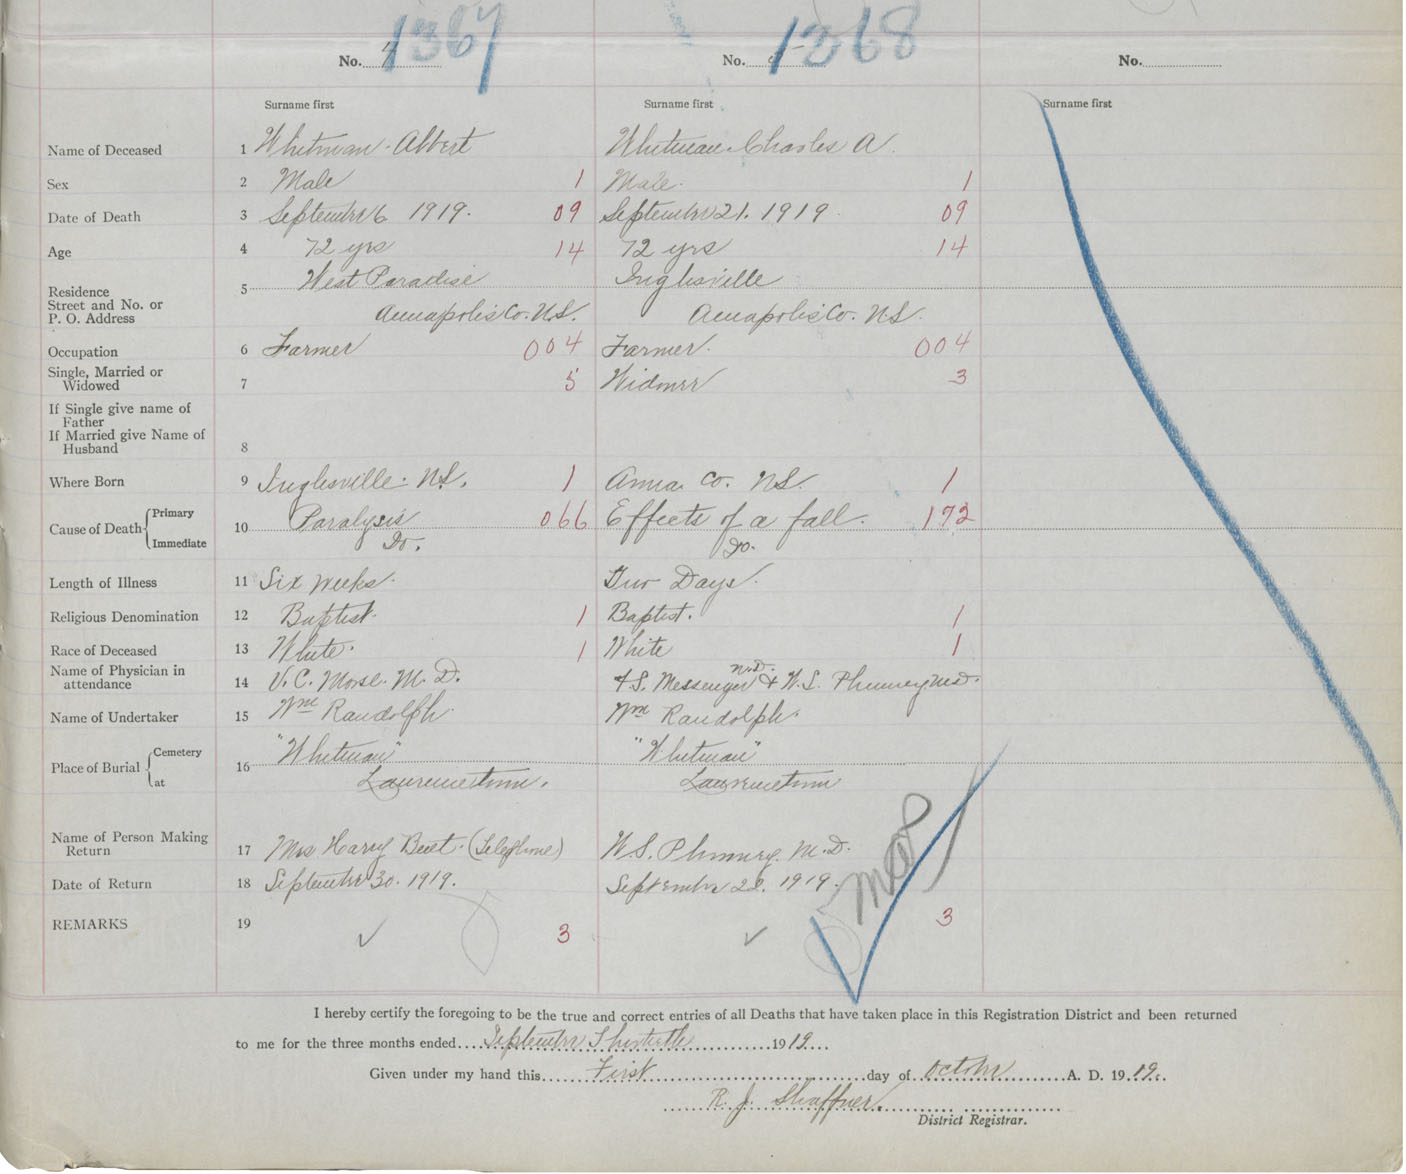 1367
1368
No. 4
No. 5
No.
Surname first
Surname first
Surname first
Name of Deceased 1 Whitman Albert Whitman Charles A.
Sex 2 Male 1 Male. 1
Date of Death 3 September 6 1919. 09 September 21. 1919 09
Age 4 72 yrs 14 72 yrs 14
Residence
Street and No. or
P. O. Address
5 West Paradise Inglisville
Annapolis Co. N.S. Annapolis Co. N.S.
Occupation 6 Farmer 004 Farmer. 004
Single, Married or
Widowed
7 5 Widower 3
If Single give name of
Father
If Married give Name of
Husband
8
Where Born 9 Inglisville. N.S. 1 Anna. Co. N.S. 1
Cause of Death Primary
Immediate
10 Paralysis 066 Effects of a fall. 172
Do. Do.
Length of Illness 11 Six weeks. Two Days.
Religious Denomination 12 Baptist. 1 Baptist. 1
Race of Deceased 13 White. 1 White 1
Name of Physician in
attendance
14 V. C. Morse. M. D. S. Messenger M.D. & W. S. Phinney M.D.
Name of Undertaker 15 Wm Randolph. Wm Randolph.
Place of Burial Cemetery
at
16 "Whitman" "Whitman"
Lawrencetown. Lawrencetown
Name of Person Making
Return
17 Mrs Harry Bent. (Telephone) W. S. Phinney. M. D.
Date of Return 18 September 30. 1919. September 22. 1919.
REMARKS 19 3 3
I hereby certify the foregoing to be the true and correct entries of all Deaths that have taken place in this Registration District and been returned
to me for the three months ended....September Thirtieth............1919...
Given under my hand this......First......day of..October......A. D. 1919..
R. J. Shaffner.
District Registrar.